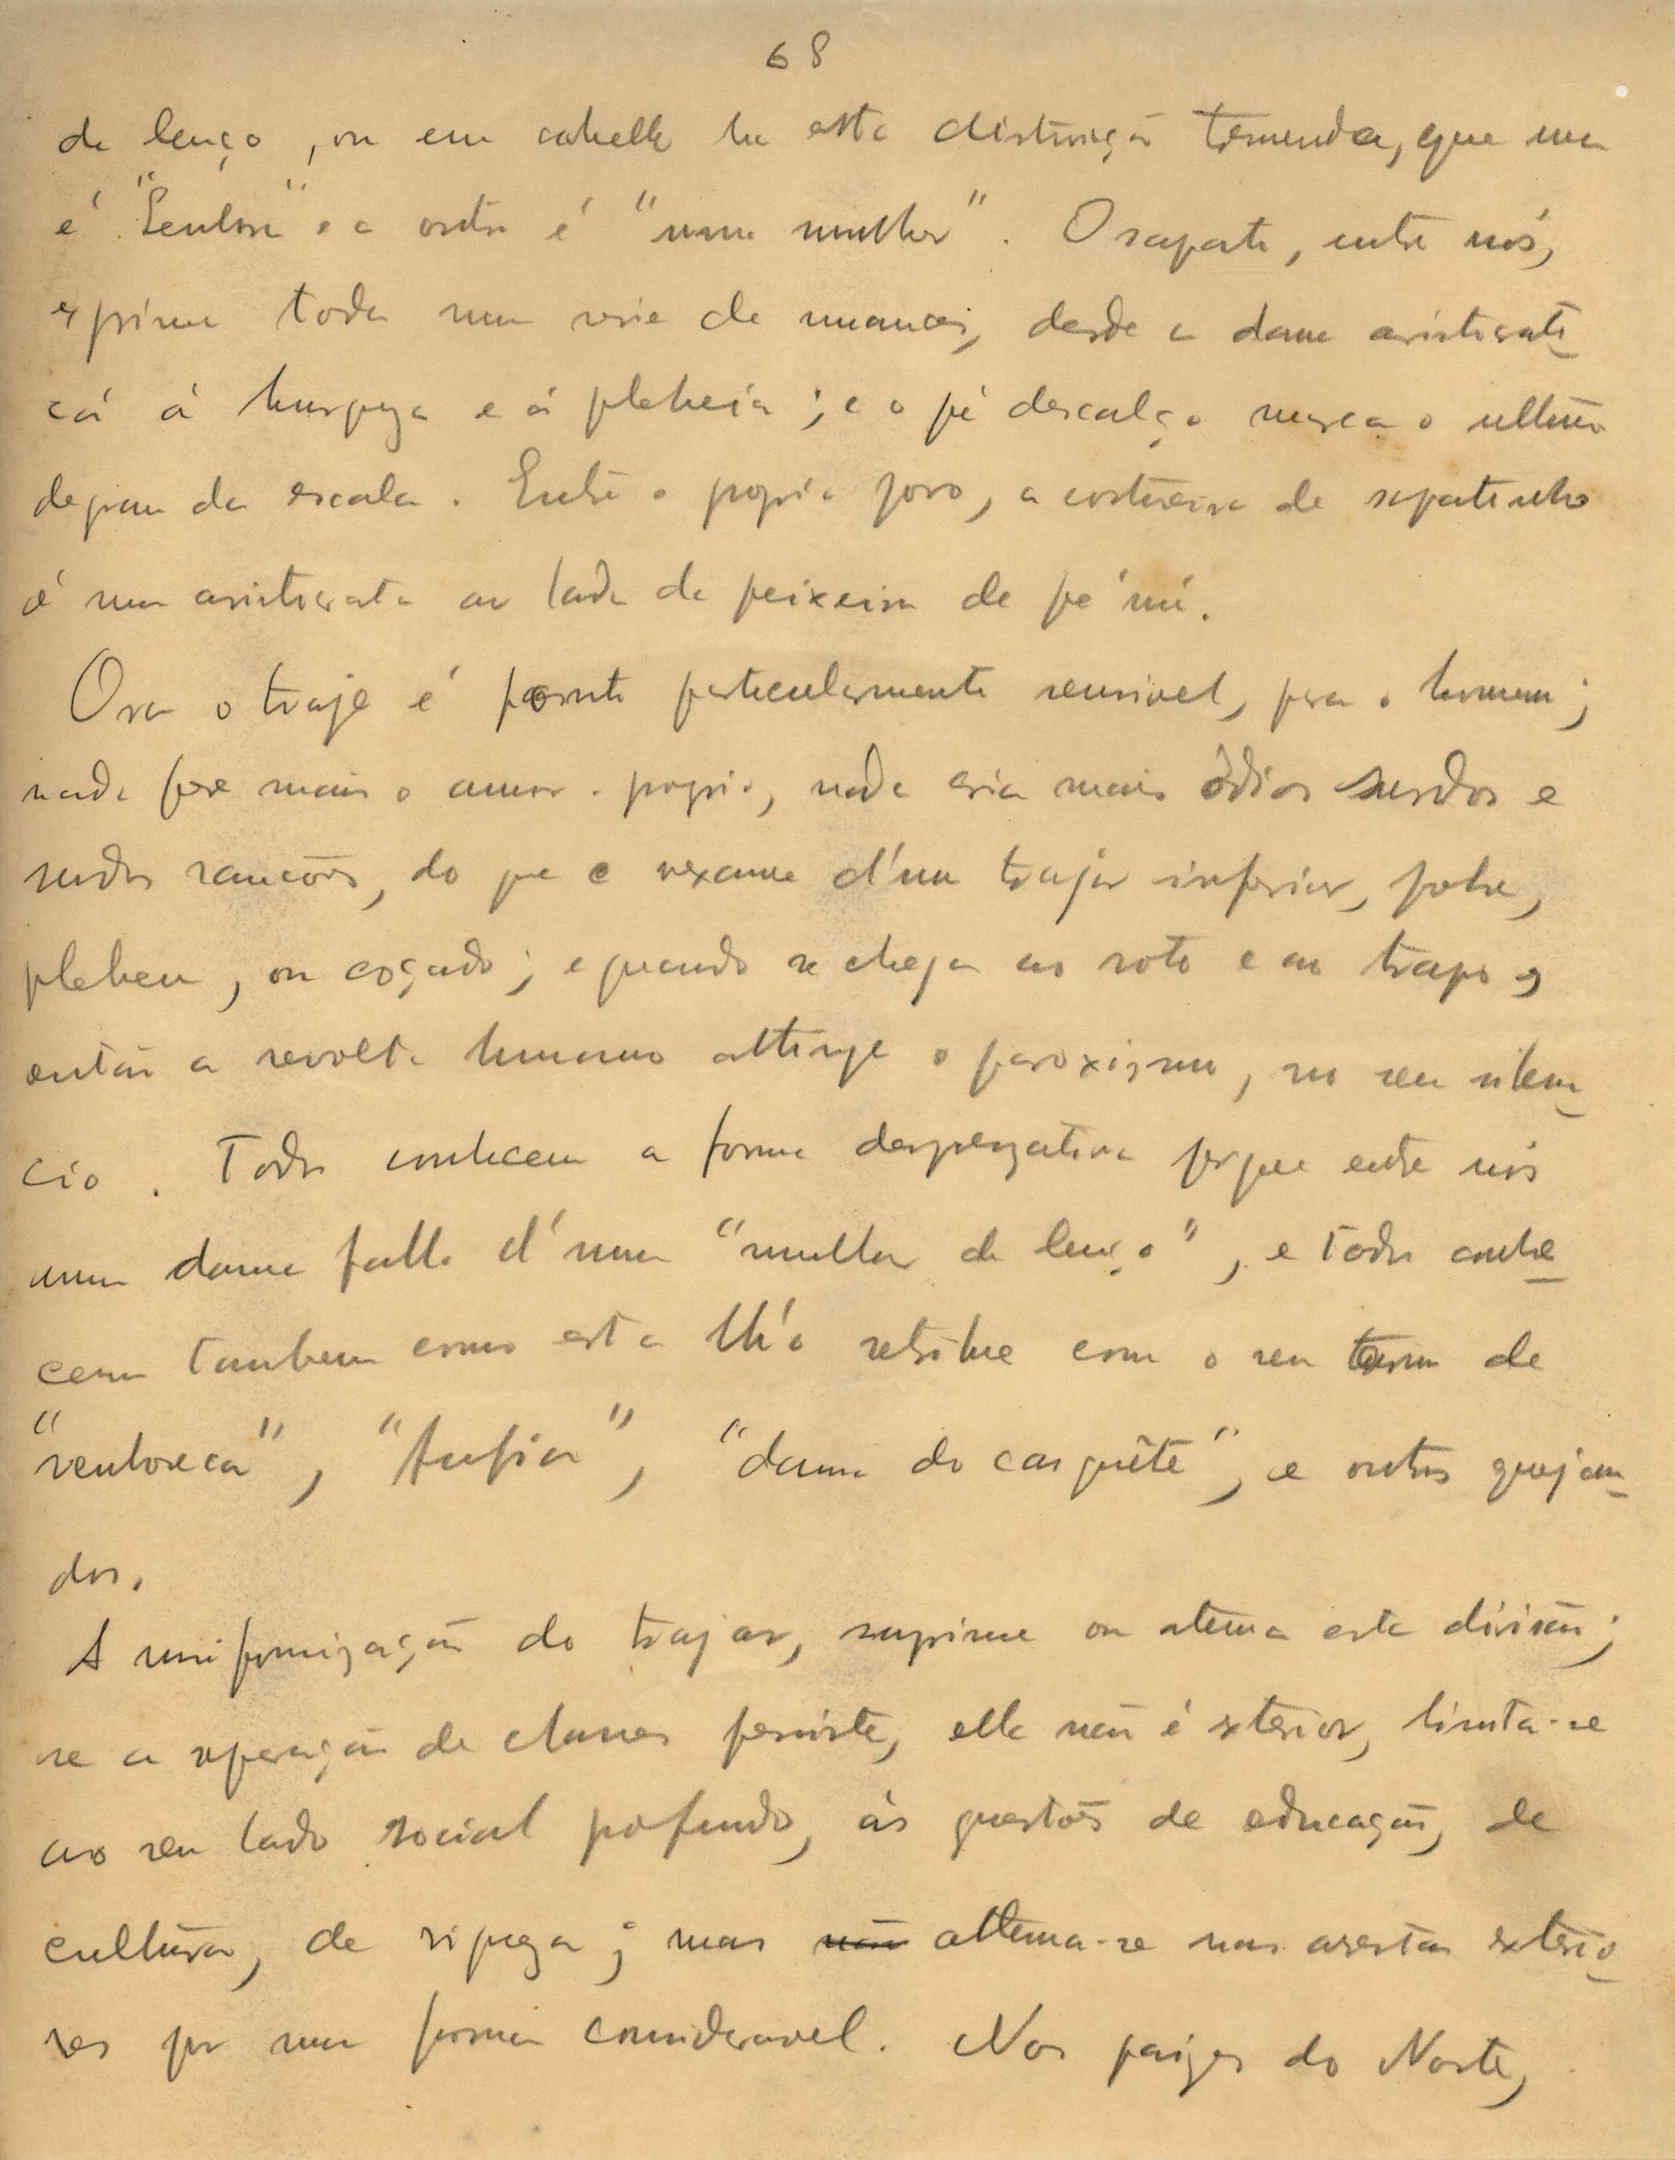 68
de lenço, ou em cabello ha esta distinção tremenda, que uma
é "Senhora" e a outra é "uma mulher". O sapato, entre nós,
exprime toda uma serie de nuances, desde a dama aristocrati-
ca á burgueza e á plebeia; e o pé descalço marca o ultimo
degrau da escala. Entre o proprio povo, a costureira de sapatinho
é uma aristocrata ao lado da peixeira de pé nú.
Ora o traje é ponto particularmente sensivel, para o homem;
nada fere mais o amor-proprio, nada cria mais ódios surdos e
surdos rancores, do que o vexame d'um trajar inferior, pobre,
plebeu, ou coçado; e quando se chega ao roto e ao trapo,
então a revolta humana attinge o paroxismo, no seu silen-
cio. Todos conhecem a forma desprezativa porque entre nós
uma dama falla d'uma "mulher de lenço", e todos conhe-
cem tambem como esta lh'o retribue com o seu termo de
"senhoreca", "dama do casquête", e outros quejan-
dos.
A uniformização do trajar, suprime ou atenua esta divisão;
se a separação de classes persiste, ella não é exterior, limita-se
ao seu lado social profundo, ás questões de educação, de
cultura, de riqueza; mas não attenua-se nas arestas exterio-
res por uma forma consideravel. Nos paizes do Norte,